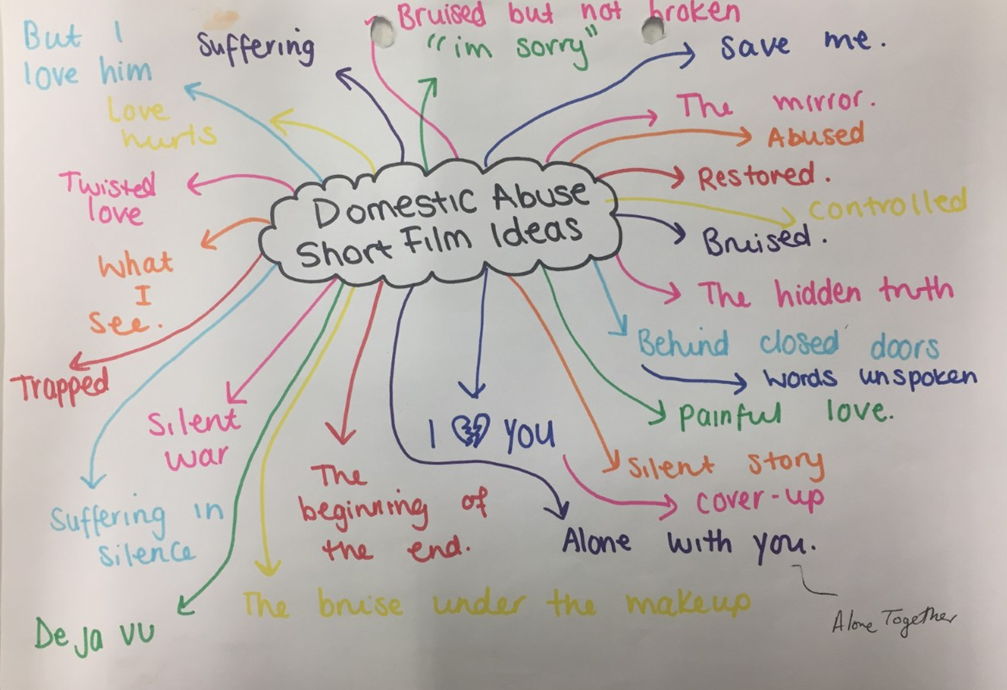 Domestic Abuse
Short Film Ideas
Bruised but not broken
"im sorry"
Suffering
But I
love him
Love
hurts
Twisted
love
What
I
see.
Trapped
Suffering in
silence
Silent
war
De Ja vu
The bruise under the makeup
The
beginning of
the end.
I 💔 you
Alone with you.
Alone Together
save me.
The mirror.
Abused
Restored.
controlled
Bruised.
The hidden truth
Behind closed doors
words unspoken
Painful love.
silent story
cover-up